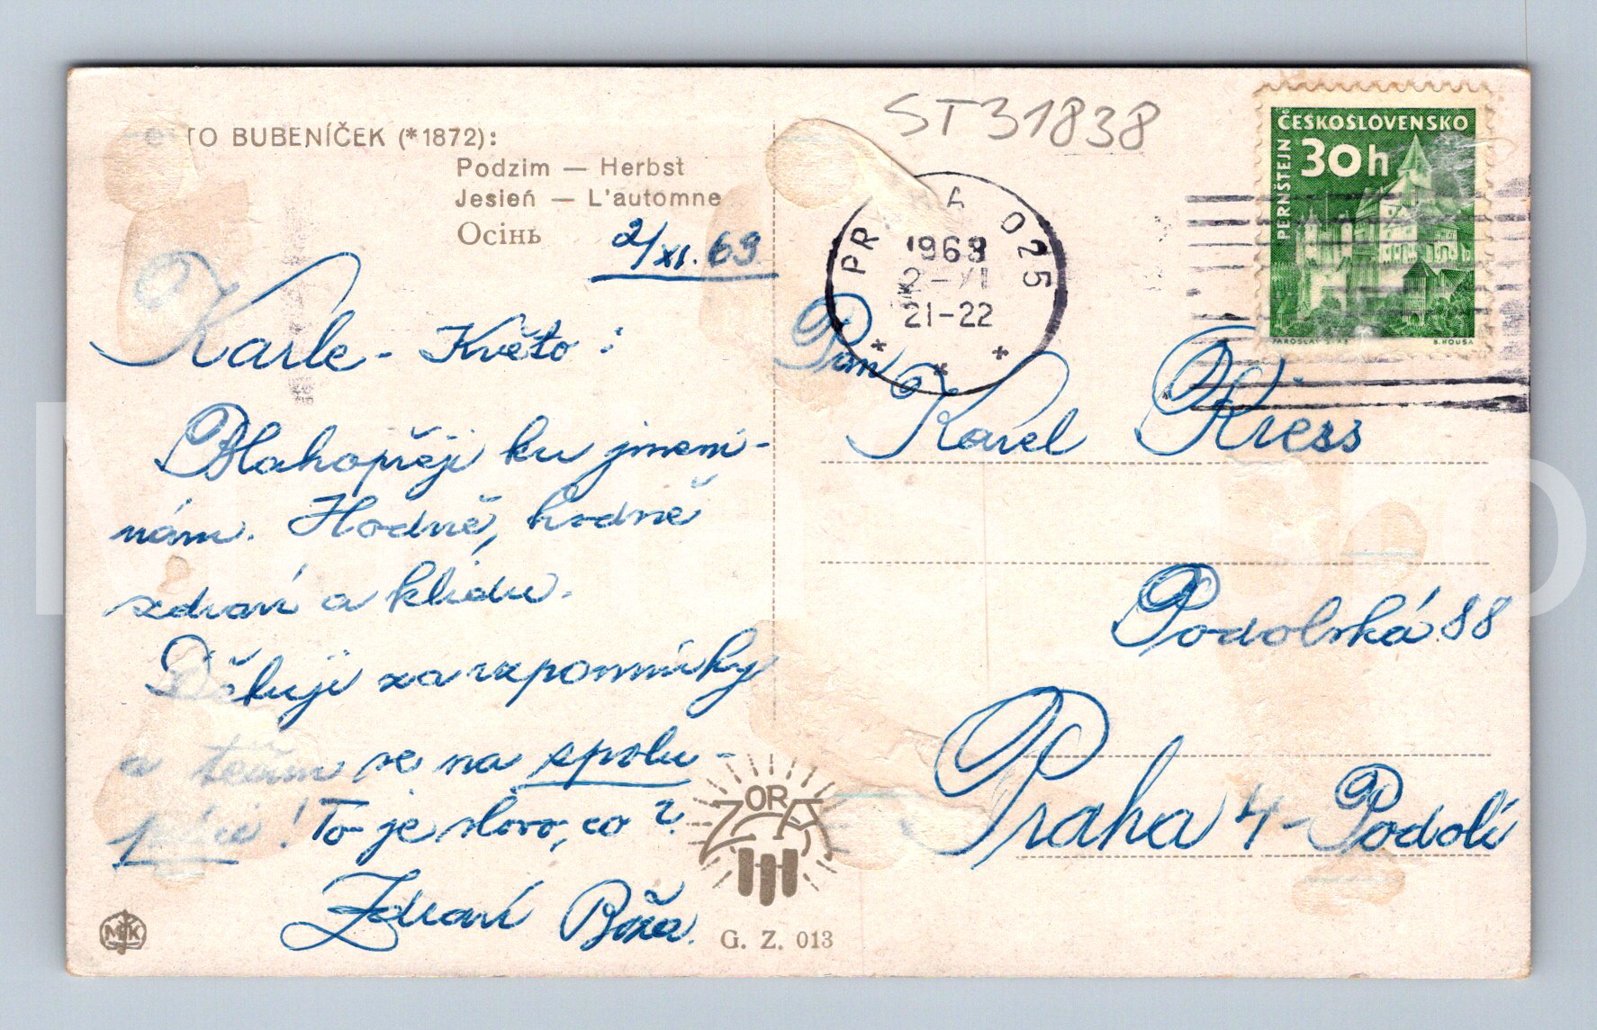 TO BUBENÍČEK (*1872):
Podzim — Herbst
Jesień — L'automne
Осінь
2/XI. 63
Karle - Květo :
Blahopřeji ku jmeni-
nám. Hodně, hodně
zdraví a klidu.
Děkuji za vzpomínky
a těším se na spolu-
práci! To je slovo, co?
Zdraví Boža.
MK
ZORA
G. Z. 013
ST31838
PRAHA 025
1963
2-XI
21-22
ČESKOSLOVENSKO
30h
PERNŠTEJN
JAROSLAV
B. HOUSA
Pan
Karel Kress
Podolská 88
Praha 4 - Podolí